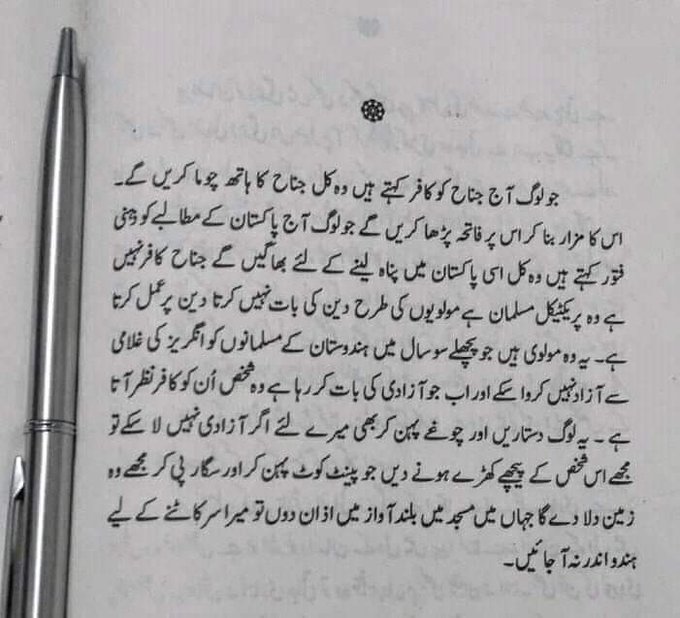 جو لوگ آج جناح کو کافر کہتے ہیں وہ کل جناح کا ہاتھ چوما کریں گے۔
اس کا مزار بنا کر اس پر فاتحہ پڑھا کریں گے جو لوگ آج پاکستان کے مطالبے کو ذہنی
فتور کہتے ہیں وہ کل اسی پاکستان میں پناہ لینے کے لئے بھاگیں گے جناح کافر نہیں
ہے وہ پریکٹیکل مسلمان ہے مولویوں کی طرح دین کی بات نہیں کرتا دین پر عمل کرتا
ہے۔ یہ وہ مولوی ہیں جو پچھلے سو سال میں ہندوستان کے مسلمانوں کو انگریز کی غلامی
سے آزاد نہیں کروا سکے اور اب جو آزادی کی بات کر رہا ہے وہ شخص اُن کو کافر نظر آتا
ہے ۔ یہ لوگ دستاریں اور چوغے پہن کر بھی میرے لئے اگر آزادی نہیں لا سکے تو
مجھے اس شخص کے پیچھے کھڑے ہونے دیں جو پینٹ کوٹ پہن کر اور سگار پی کر مجھے وہ
زمین دلا دے گا جہاں میں مسجد میں بلند آواز میں اذان دوں تو میرا سر کاٹنے کے لیے
ہندو اندر نہ آ جائیں۔